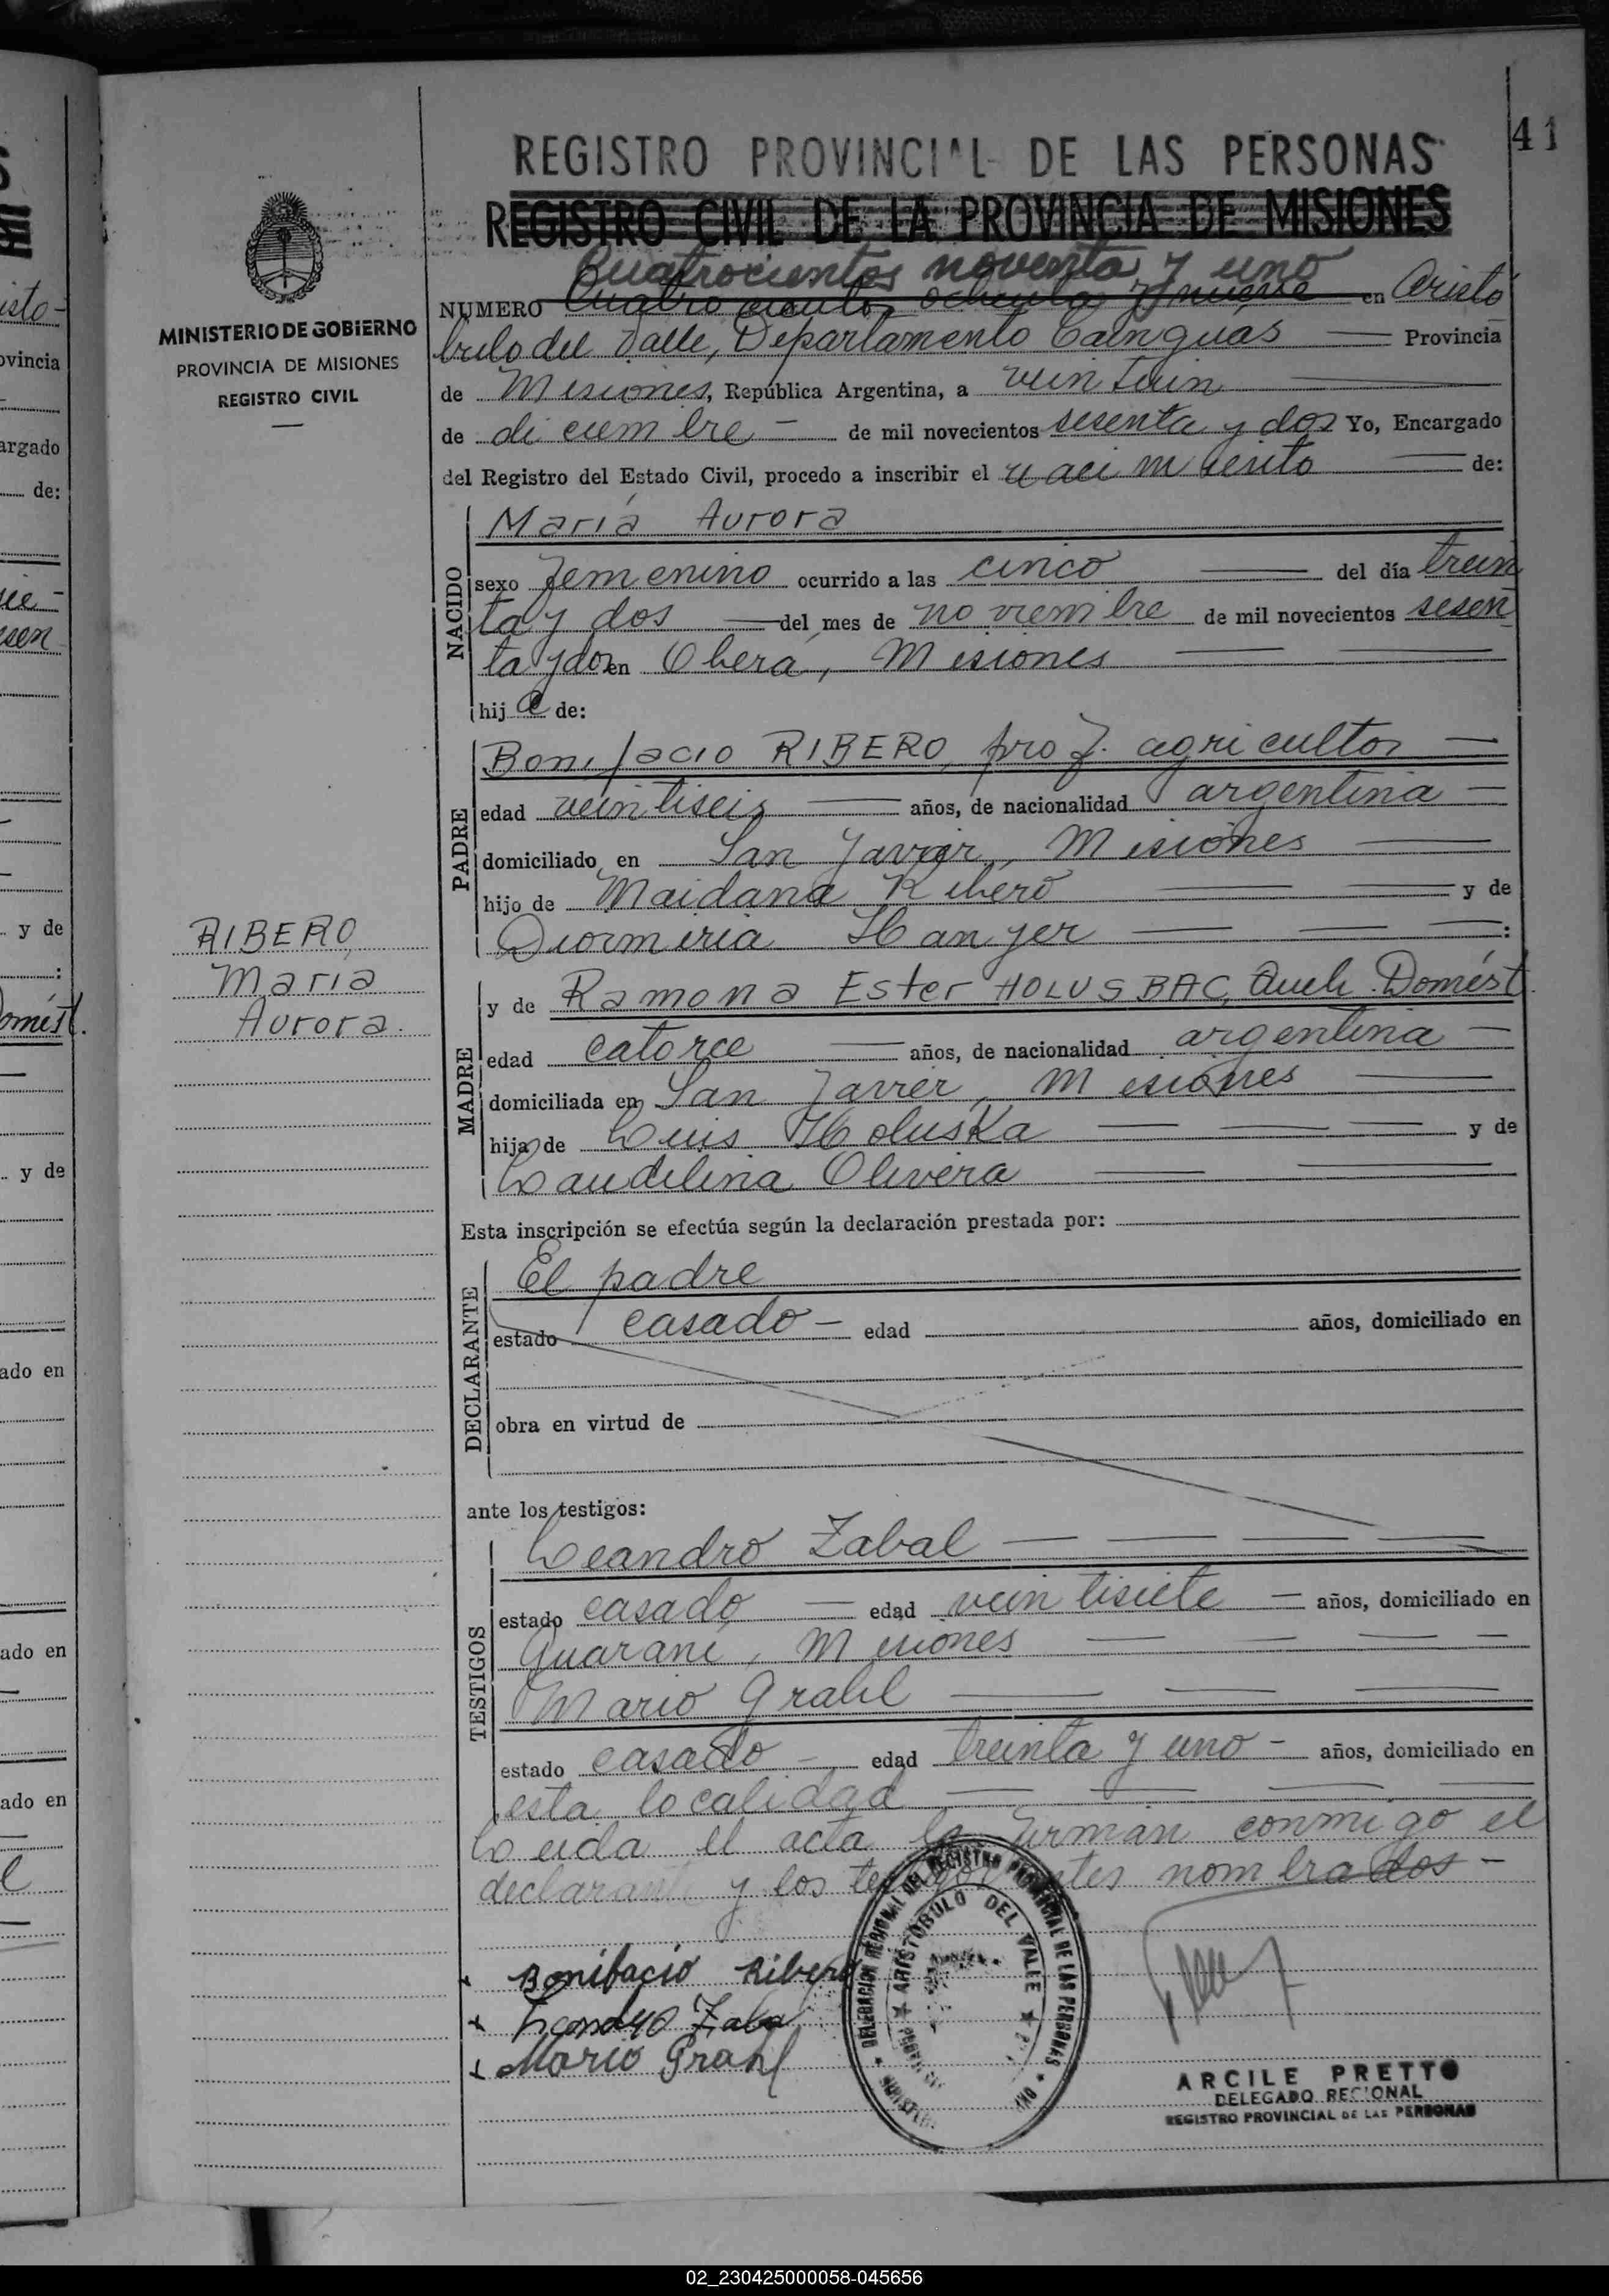 41
REGISTRO PROVINCIAL DE LAS PERSONAS
REGISTRO CIVIL DE LA PROVINCIA DE MISIONES
MINISTERIO DE GOBIERNO
PROVINCIA DE MISIONES
REGISTRO CIVIL
Cuatrocientos noventa y uno
NUMERO Cuatro cientos ochenta y nueve en Aristó
bulo del Valle, Departamento Cainguás Provincia
de Misiones, República Argentina, a
de diciembre - de mil novecientos sesenta y dos Yo, Encargado
del Registro del Estado Civil, procedo a inscribir el nacimiento de:
NACIDO
María Aurora
sexo femenino ocurrido a las cinco del día trein
ta y dos del mes de noviembre de mil novecientos sesen
ta y dos en Oberá, Misiones
hij a de:
PADRE
Bonifacio RIBERO, prof. agricultor
edad veintiseis años, de nacionalidad argentina
domiciliado en San Javier, Misiones
hijo de Maidana Ribero y de
Hanyer :
RIBERO,
Maria
Aurora.
MADRE
y de Ramona Ester HOLUSBAC, Queh. Domést.
edad catorce años, de nacionalidad argentina
domiciliada en San Javier, Misiones
hija de Luis Holuska y de
Laudelina Olivera
Esta inscripción se efectúa según la declaración prestada por:
DECLARANTE
El padre
estado casado - edad años, domiciliado en
obra en virtud de
ante los testigos:
TESTIGOS
Leandro Zabal
estado casado edad veintisiete años, domiciliado en
Guaraní, Misiones
Mario Grahl
estado casado edad treinta y uno - años, domiciliado en
esta localidad
Leida el acta la firman conmigo el
declarante y los testigos antes nombrados -
Bonifacio Ribero
Leandro Zabal
Mario Grahl
DELEGACION REGIONAL DEL REGISTRO PROVINCIAL DE LAS PERSONAS
ARISTOBULO DEL VALLE
ARCILE PRETTO
DELEGADO REGIONAL
REGISTRO PROVINCIAL DE LAS PERSONAS
02_230425000058-045656